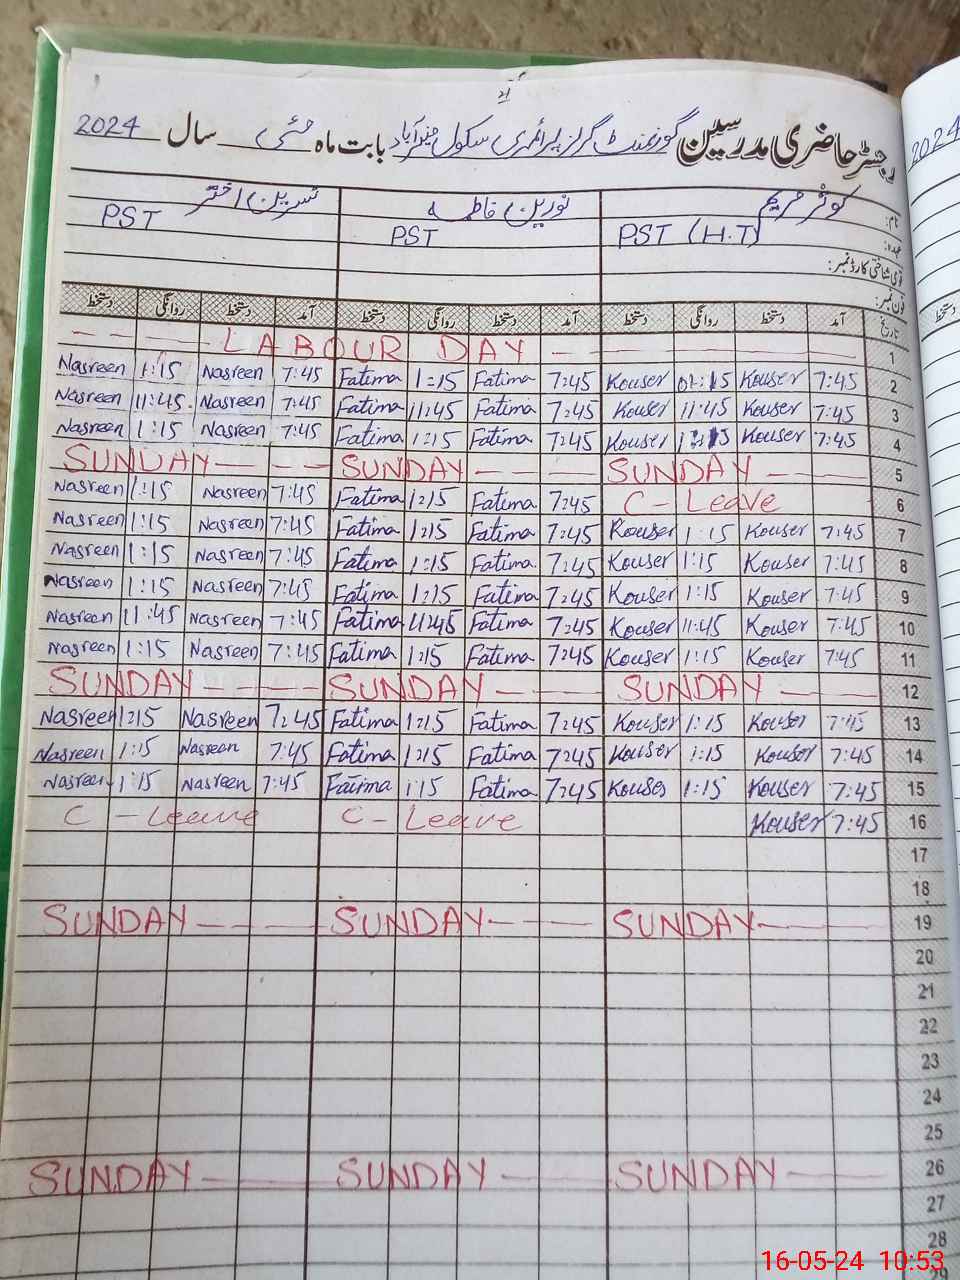 رجسٹر حاضری مدرسین گورنمنٹ گرلز پرائمری سکول بابت ماہ مئی سال 2024
نام: کوثر مریم نورین فاطمہ نسرین اختر
عہدہ: PST (H.T) PST PST
قومی شناختی کارڈ نمبر:
فون نمبر:
تاریخ آمد دستخط روانگی دستخط آمد دستخط روانگی دستخط آمد دستخط روانگی دستخط
- - - - LABOUR DAY - - - - - 1
Nasreen 1:15 Nasreen 7:45 Fatima 1:15 Fatima 7:45 Kouser 01:15 Kouser 7:45 2
Nasreen 11:45 Nasreen 7:45 Fatima 11:45 Fatima 7:45 Kouser 11:45 Kouser 7:45 3
Nasreen 1:15 Nasreen 7:45 Fatima 1:15 Fatima 7:45 Kouser 1:15 Kouser 7:45 4
SUNDAY - - - SUNDAY - - - SUNDAY - - 5
Nasreen 1:15 Nasreen 7:45 Fatima 1:15 Fatima 7:45 C - Leave 6
Nasreen 1:15 Nasreen 7:45 Fatima 1:15 Fatima 7:45 Kouser 1:15 Kouser 7:45 7
Nasreen 1:15 Nasreen 7:45 Fatima 1:15 Fatima 7:45 Kouser 1:15 Kouser 7:45 8
Nasreen 1:15 Nasreen 7:45 Fatima 1:15 Fatima 7:45 Kouser 1:15 Kouser 7:45 9
Nasreen 11:45 Nasreen 7:45 Fatima 11:45 Fatima 7:45 Kouser 11:45 Kouser 7:45 10
Nasreen 1:15 Nasreen 7:45 Fatima 1:15 Fatima 7:45 Kouser 1:15 Kouser 7:45 11
SUNDAY - - - - SUNDAY - - - SUNDAY - - 12
Nasreen 1:15 Nasreen 7:45 Fatima 1:15 Fatima 7:45 Kouser 1:15 Kouser 7:45 13
Nasreen 1:15 Nasreen 7:45 Fatima 1:15 Fatima 7:45 Kouser 1:15 Kouser 7:45 14
Nasreen 1:15 Nasreen 7:45 Fatima 1:15 Fatima 7:45 Kouser 1:15 Kouser 7:45 15
C - Leave C - Leave Kouser 7:45 16
17
18
SUNDAY - - - SUNDAY - - - SUNDAY - - 19
20
21
22
23
24
25
SUNDAY - - SUNDAY - - - SUNDAY - - 26
27
28
29
2024
دستخط
16-05-24 10:53